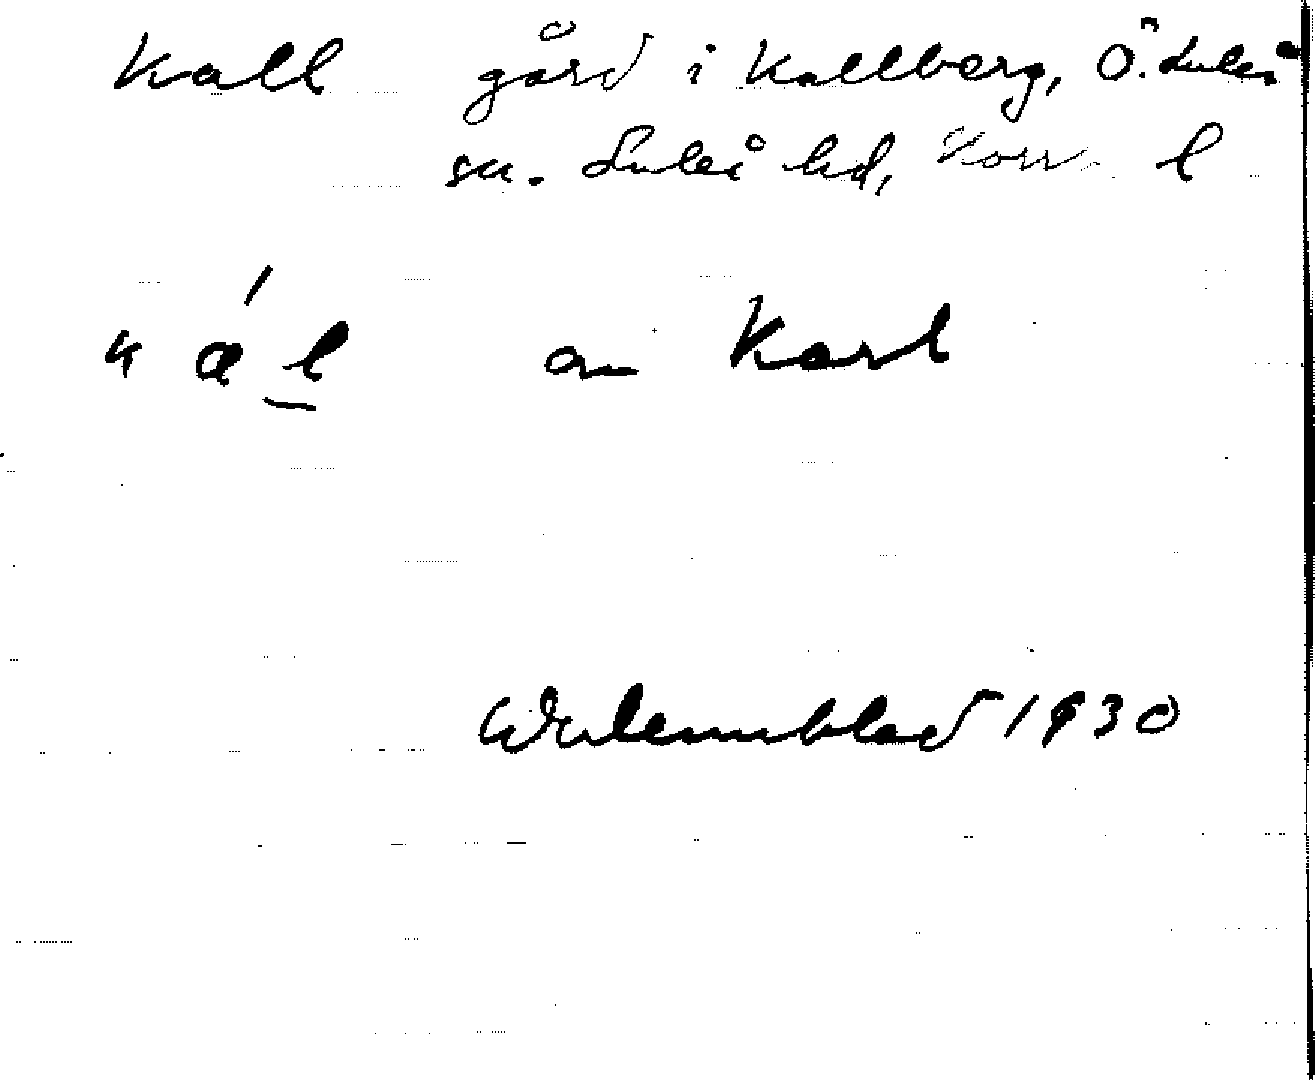 Kall gård i Kallberg, Ö. Luleå
sn. Luleå hd, Norrb. l
k a̍ l̲ av Karl
Wulennblad 1930